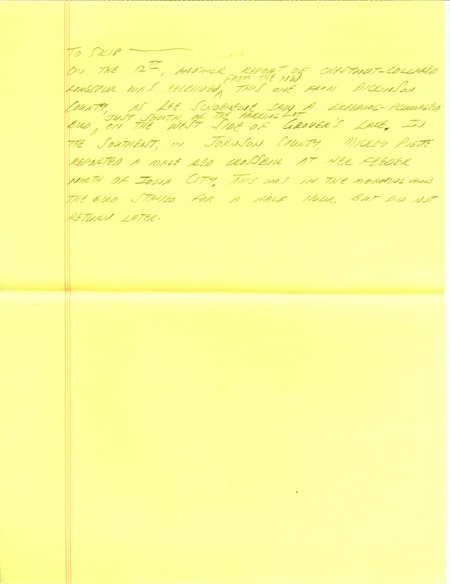 TO SKIP
ON THE 12TH, ANOTHER REPORT OF CHESTNUT-COLLARED
FROM THE NW
LONGSPUR WAS RECEIVED, THIS ONE FROM DICKINSON
COUNTY, AS LEE SCHOENEWE SAW A BREEDING-PLUMAGED
JUST SOUTH OF THE PARKING LOT
BIRD, ON THE WEST SIDE OF GROVER'S LAKE. IN
THE SOUTHEAST, IN JOHNSON COUNTY, MICKEY
REPORTED A MALE RED CROSSBILL AT HER FEEDER
NORTH OF IOWA CITY. THIS WAS IN THE MORNING AND
THE BIRD STAYED FOR A HALF HOUR, BUT DID NOT
RETURN LATER.